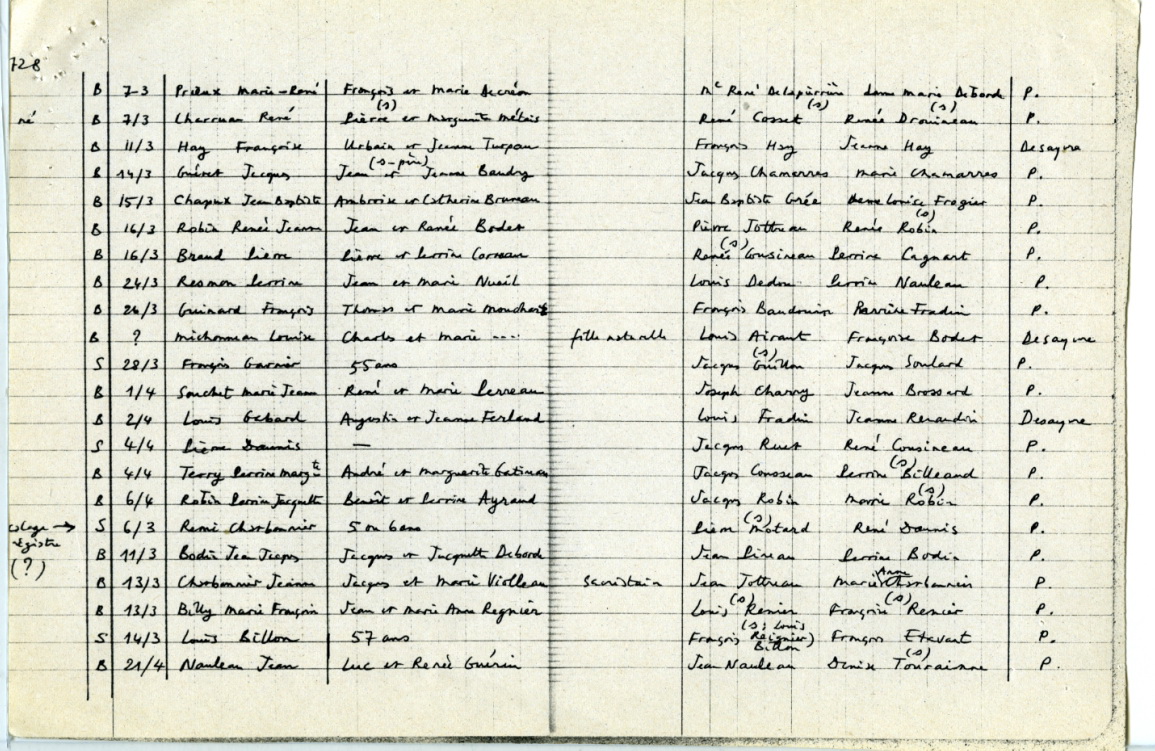 728
B 7-3 Prieux Marie-René François et Marie Decréon Mᵉ René Delaperrière dame Marie Debord P.
né B 7/3 Charruau René Pierre (s) et Marguerite Métais René Cosset (s) Renée Drouineau (s) P.
B 11/3 Hay Françoise Urbain et Jeanne Turpau François Hay Jeanne Hay Desayvre
B 14/3 Guéret Jacques Jean (s-père) et Jeanne Baudry Jacques Chamarres Marie Chamarres P.
B 15/3 Chapeux Jean Baptiste Ambroise et Catherine Bruneau Jean Baptiste Grée Louise Frogier P.
B 16/3 Robin Renée Jeanne Jean et Renée Bodet Pierre Jottreau Renée Robin (s) P.
B 16/3 Braud Pierre Pierre et Perrine Carreau René (s) Cousineau Perrine Cagnart P.
B 24/3 Resmon Perrine Jean et Marie Nueil Louis Dedou Perrine Nauleau P.
B 26/3 Guinard François Thomas et Marie François Baudouin Perrine Fradin P.
B ? Michonneau Louise Charles et Marie .... fille naturelle Louis Airaut Françoise Bodet Desayvre
S 28/3 François Garnier 55 ans Jacques Guillon (s) Jacques Soulard P.
B 1/4 Souchet Marie Jeanne René et Marie Perreau Joseph Charry Jeanne Brossard P.
B 2/4 Louis Gabard Augustin et Jeanne Ferland Louis Fradin Jeanne Renaudin Desayvre
S 4/4 Pierre Daunis — Jacques Ruet René Cousineau P.
B 4/4 Terry Perrine Margᵗᵉ André et Marguerite Gatineau Jacques Cousseau Perrine (s) Billeaud P.
B 6/4 Robin Perrine Jacquette Benoît et Perrine Ayraud Jacques Robin Marie Robin (s) P.
→ S 6/3 René Charbonnier 5 ou 6 ans Pierre (s) Motard René Daunis P.
registre B 11/3 Bodin Jean Jacques Jacques et Jacquette Debord Jean Pineau Perrine Bodin P.
(?) B 13/3 Charbonnier Jeanne Jacques et Marie Violleau sacristain Jean Jottreau Marie Anne Charbonnier P.
B 13/3 Billy Marie Françoise Jean et Marie Anne Regnier Louis (s) Renier Françoise Renier (s) P.
S 14/3 Louis Billon 57 ans François Billon (s; Louis Reignier) François Etavart P.
B 21/4 Nauleau Jean Luc et Renée Guérin Jean Nauleau Denise Tourainne (s) P.